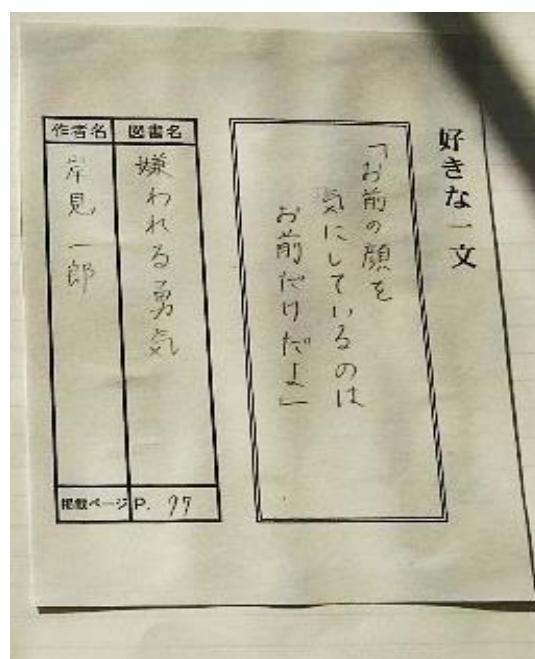 好きな一文
「お前の顔を
気にしているのは
お前だけだよ」
図書名
嫌われる勇気
作者名
岸見一郎
掲載ページ P. 97